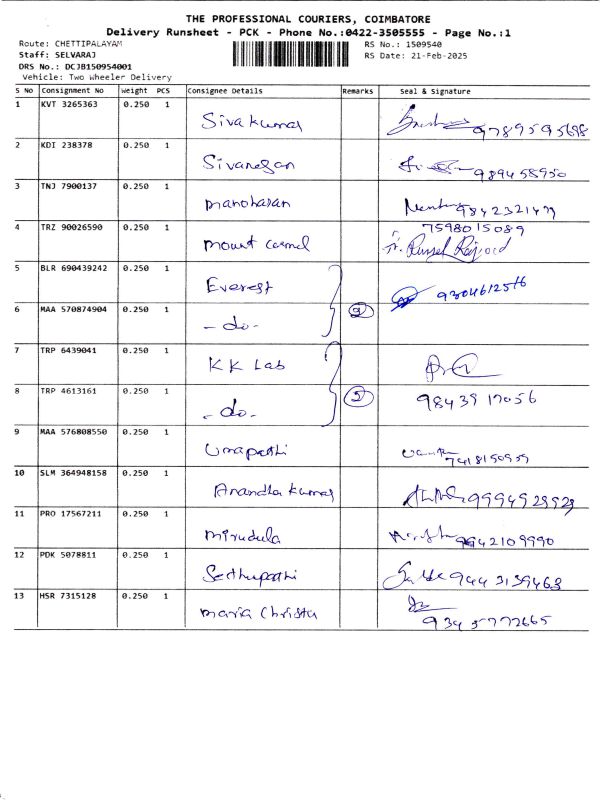 THE PROFESSIONAL COURIERS, COIMBATORE
Delivery Runsheet - PCK - Phone No.:0422-3505555 - Page No.:1
Route: CHETTIPALAYAM RS No.: 1509540
Staff: SELVARAJ RS Date: 21-Feb-2025
DRS No.: DCJB150954001
Vehicle: Two Wheeler Delivery
S No Consignment No Weight PCS Consignee Details Remarks Seal & Signature
1 KVT 3265363 0.250 1 Sivakumar 9789595698
2 KDI 238378 0.250 1 Sivanesan 989458950
3 TNJ 7900137 0.250 1 Manoharan 9842321479
4 TRZ 90026590 0.250 1 Mount Carmel 7598015089
5 BLR 690439242 0.250 1 Everest 9304612516
6 MAA 570874904 0.250 1 -do-
7 TRP 6439041 0.250 1 KK Lab
8 TRP 4613161 0.250 1 -do- 9843917056
9 MAA 576808550 0.250 1 Umapathi 7418150959
10 SLM 364948158 0.250 1 Anandha Kumar 9994929929
11 PRO 17567211 0.250 1 Mirudula 9942109990
12 PDK 5078811 0.250 1 Sethupathi 9443139463
13 HSR 7315128 0.250 1 Maria Christu 9345772665